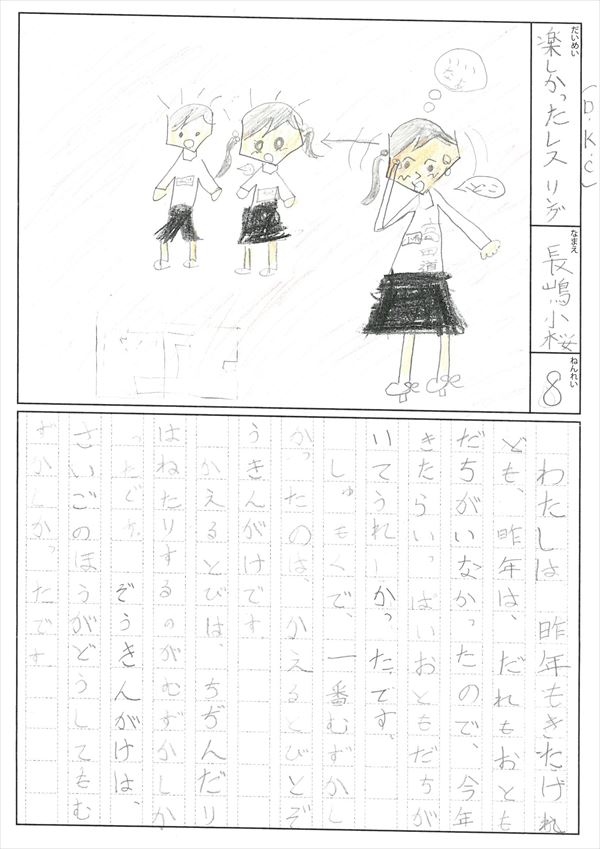 (D.K.C)
だいめい
楽しかったレスリング
なまえ
長嶋小桜
ねんれい
8
いい
なぁ
どこ
わたしは 昨年もきたけれ
ども、昨年は、だれもおとも
だちがいなかったので、今年
きたらいっぱいおともだちが
いてうれしかったです。
しゅもくで、一番むずかし
かったのは、かえるとびとぞ
うきんがけです。
かえるとびは、ちぢんだり
はねたりするのがむずかしか
ったです。ぞうきんがけは、
さいごのほうがどうしてもむ
ずかしかったです。